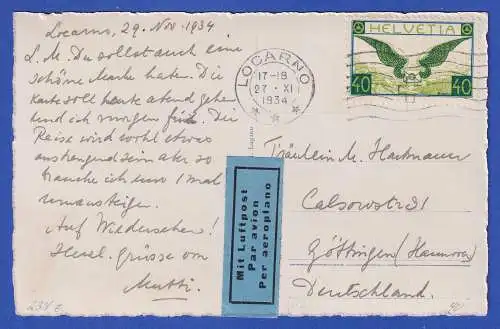 Locarno, 29. Nov. 1934
L. M. Du sollst auch eine
schöne Marke haben. Die
Karte soll heute abend gehen
und ich morgen früh. Die
Reise wird wohl etwas
anstrengend sein aber so
brauche ich nur 1 mal
umzusteigen.
Auf Wiedersehen!
Herzl. Grüsse von
Mutti.
HELVETIA
40 40
LOCARNO
17-18
27·XI
1934
Mit Luftpost
Par avion
Per aeroplano
Fräulein M. Hartnauer
Calsowstr 31
Göttingen (Hannover)
Deutschland.